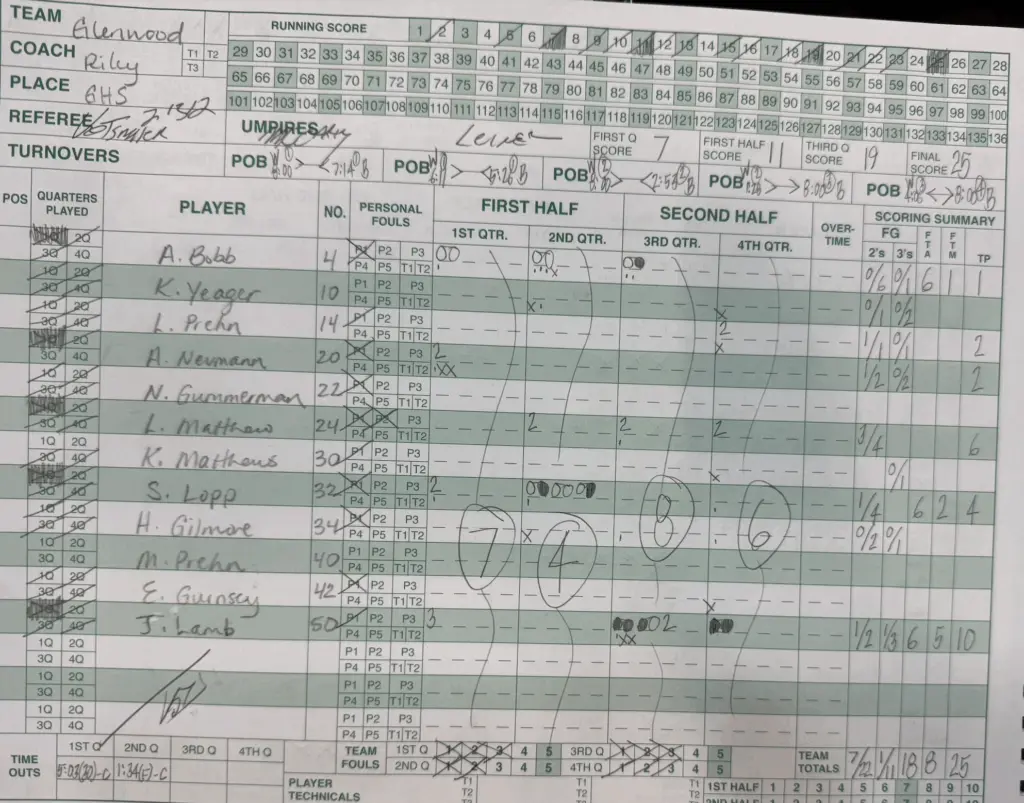 TEAM Glenwood RUNNING SCORE 1 2 3 4 5 6 7 8 9 10 11 12 13 14 15 16 17 18 19 20 21 22 23 24 25 26 27 28
COACH Riley T1 T2 T3 29 30 31 32 33 34 35 36 37 38 39 40 41 42 43 44 45 46 47 48 49 50 51 52 53 54 55 56 57 58 59 60 61 62 63 64
PLACE GHS 65 66 67 68 69 70 71 72 73 74 75 76 77 78 79 80 81 82 83 84 85 86 87 88 89 90 91 92 93 94 95 96 97 98 99 100
101 102 103 104 105 106 107 108 109 110 111 112 113 114 115 116 117 118 119 120 121 122 123 124 125 126 127 128 129 130 131 132 133 134 135 136
REFEREE UMPIRES FIRST Q SCORE 7 FIRST HALF SCORE 11 THIRD Q SCORE 19 FINAL SCORE 25
TURNOVERS POB POB POB POB POB
POS QUARTERS PLAYED PLAYER NO. PERSONAL FOULS FIRST HALF SECOND HALF OVER-TIME SCORING SUMMARY
1ST QTR. 2ND QTR. 3RD QTR. 4TH QTR. FG 2's 3's FTA FTM TP
A. Bobb 4 P1 P2 P3 P4 P5 T1 T2 0/6 0/1 6 1 1
K. Yeager 10 P1 P2 P3 P4 P5 T1 T2 0/1 0/2
L. Prehn 14 P1 P2 P3 P4 P5 T1 T2 2 1/1 0/1 2
A. Neumann 20 P1 P2 P3 P4 P5 T1 T2 2 1/2 0/2 2
N. Gummerman 22 P1 P2 P3 P4 P5 T1 T2
L. Matthew 24 P1 P2 P3 P4 P5 T1 T2 2 2 2 3/4 6
K. Matthews 30 P1 P2 P3 P4 P5 T1 T2 0/1
S. Lopp 32 P1 P2 P3 P4 P5 T1 T2 2 1/4 6 2 4
H. Gilmore 34 P1 P2 P3 P4 P5 T1 T2 7 4 8 6 0/2 0/1
M. Prehn 40 P1 P2 P3 P4 P5 T1 T2
E. Guinsey 42 P1 P2 P3 P4 P5 T1 T2
J. Lamb 50 P1 P2 P3 P4 P5 T1 T2 3 2 1/2 1/3 6 5 10
1Q 2Q 3Q 4Q P1 P2 P3 P4 P5 T1 T2
1Q 2Q 3Q 4Q P1 P2 P3 P4 P5 T1 T2
1Q 2Q 3Q 4Q P1 P2 P3 P4 P5 T1 T2
TIME OUTS 1ST Q 2ND Q 3RD Q 4TH Q TEAM FOULS 1ST Q 1 2 3 4 5 3RD Q 1 2 3 4 5 TEAM TOTALS 7/22 1/11 18 8 25
5:03(30)-C 2ND Q 1 2 3 4 5 4TH Q 1 2 3 4 5
PLAYER TECHNICALS T1 T2 T1 T2 1ST HALF 1 2 3 4 5 6 7 8 9 10